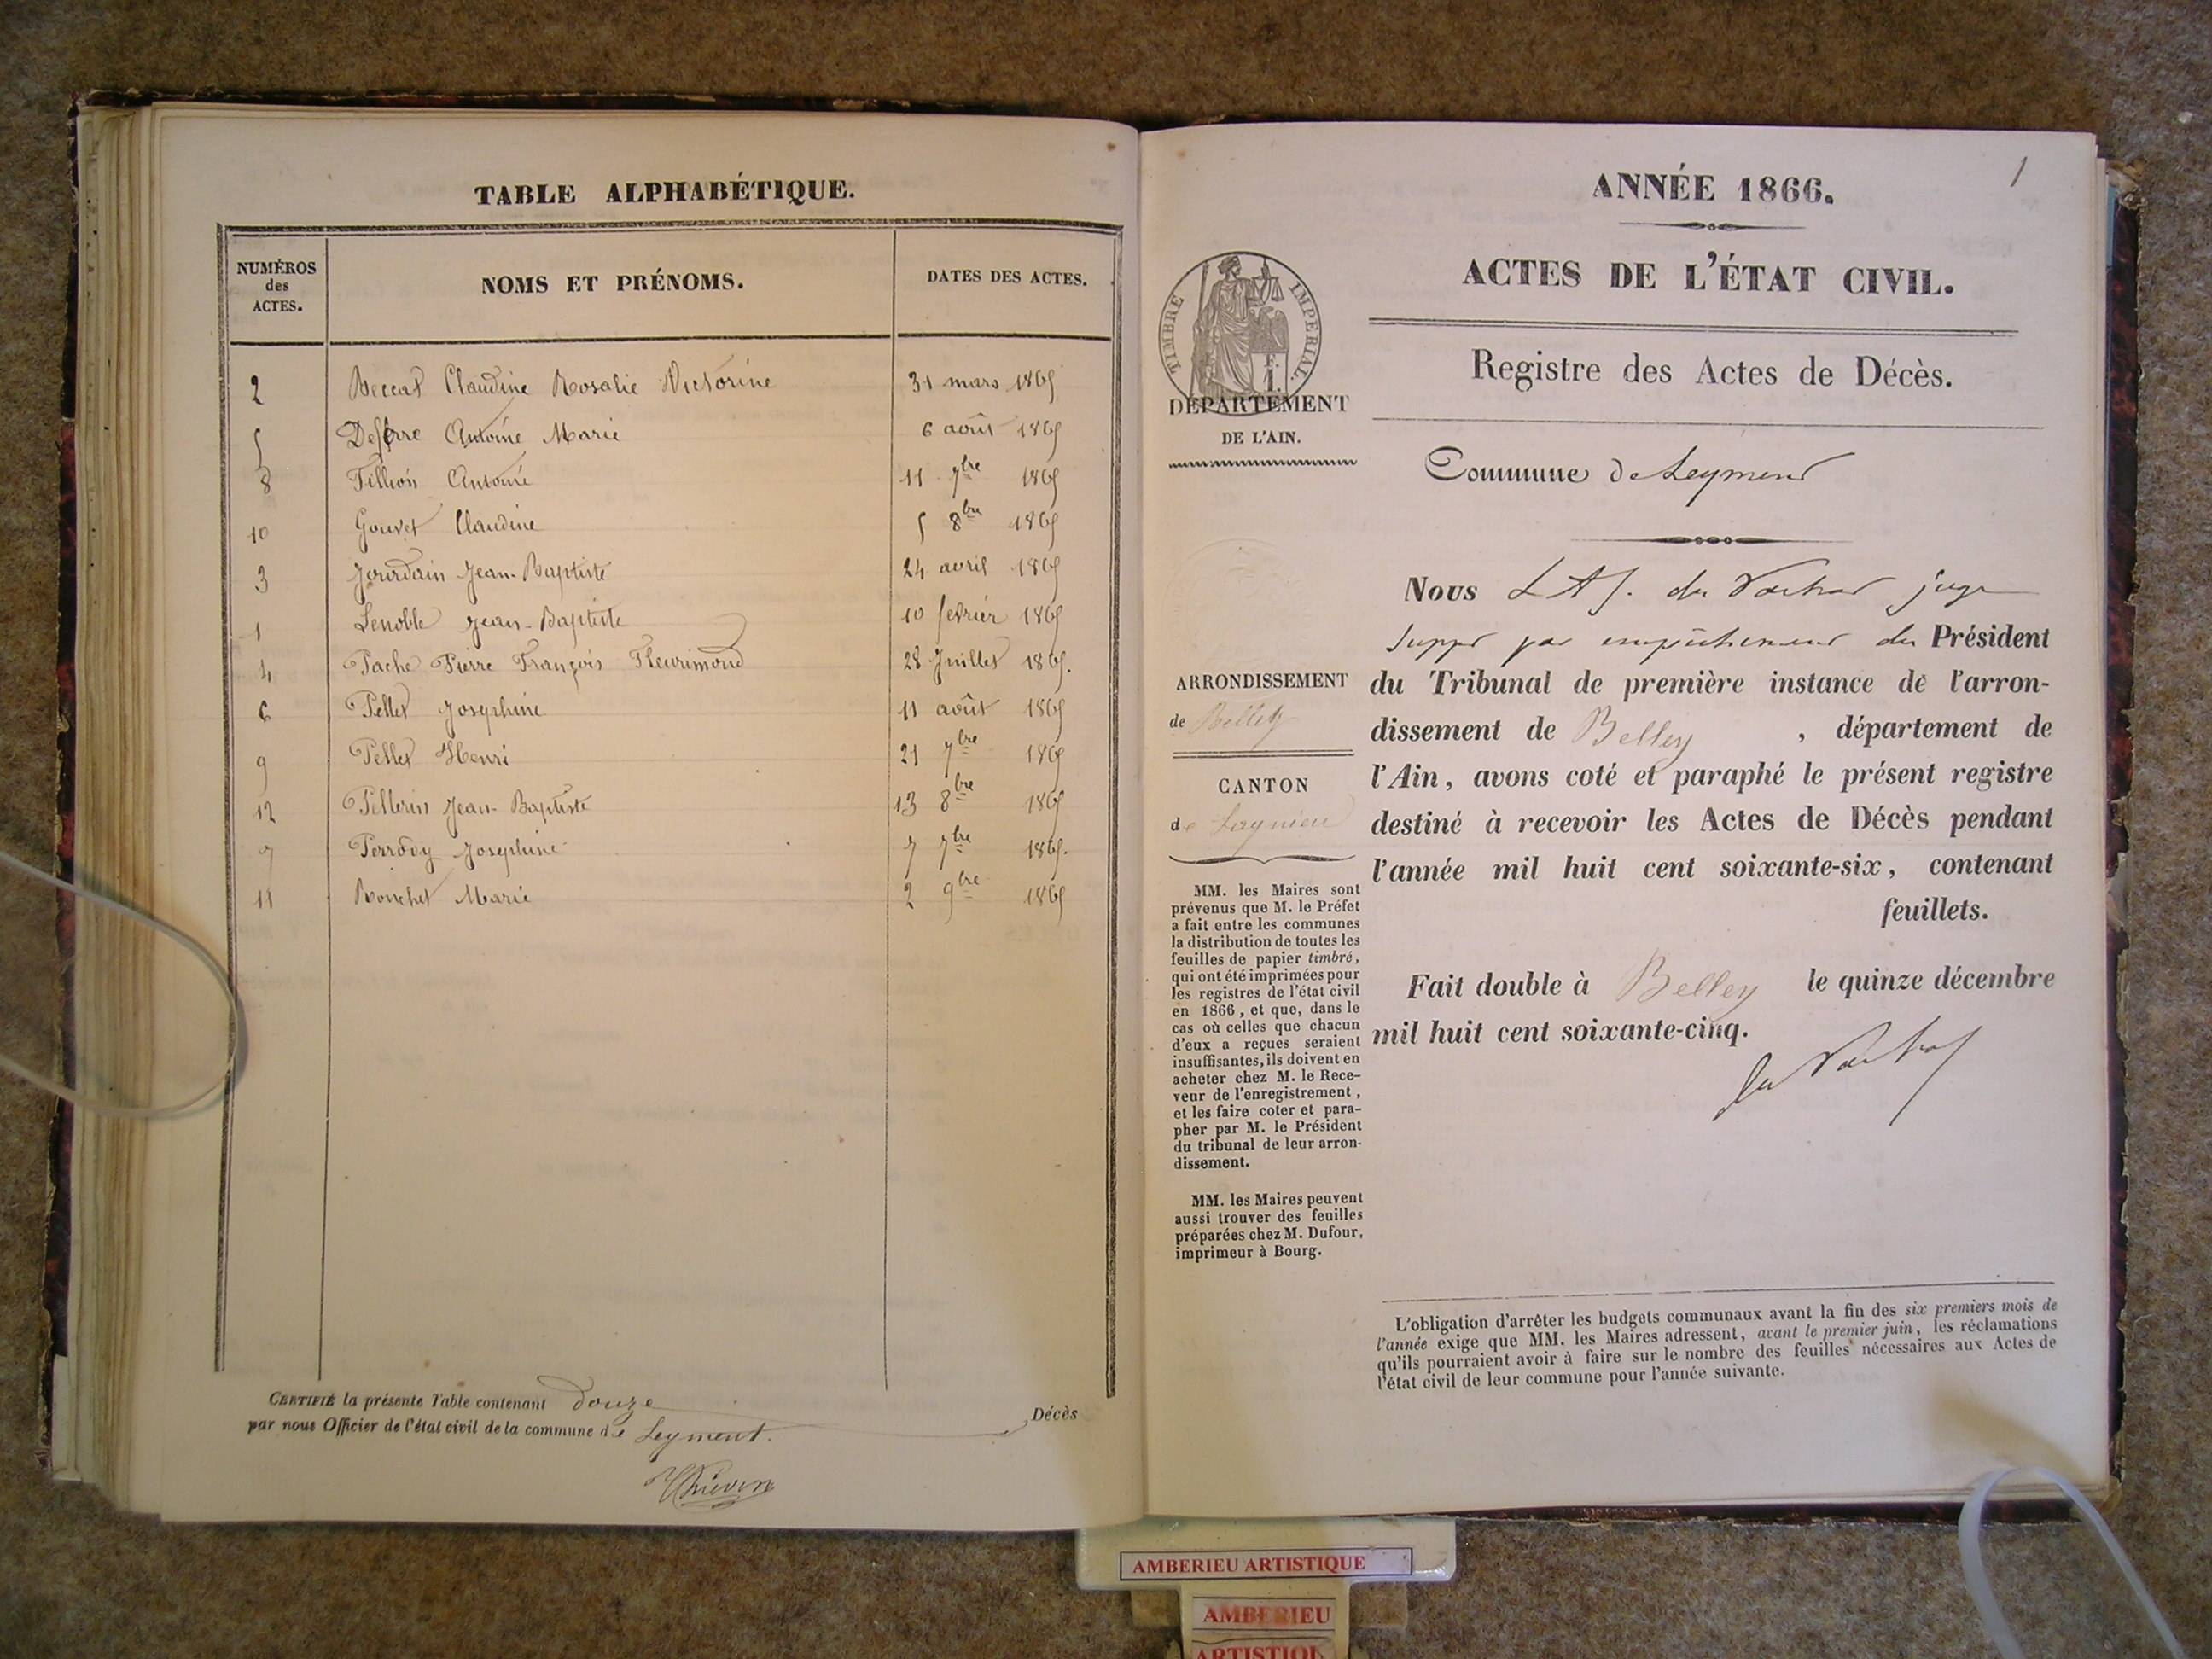 TABLE ALPHABÉTIQUE.
NUMÉROS des ACTES.
NOMS ET PRÉNOMS.
DATES DES ACTES.
2 Beccat Claudine Rosalie Victorine 31 mars 1865
5 Antoine Marie 6 août 1865
8 Tillion Antoine 11 7bre 1865
10 Gouvet Claudine 5 8bre 1865
3 Jourdain Jean-Baptiste 24 avril 1865
1 Lenoble Jean-Baptiste 10 fevrier 1865
4 Pache Pierre François Fleurimond 28 Juillet 1865.
6 Pellet Josephine 11 août 1865
9 Pellet Henri 21 7bre 1865
12 Pellerin Jean-Baptiste 13 8bre 1865
7 Perrody Josephine 7 7bre 1865.
11 Ronchet Marie 2 9bre 1865
CERTIFIÉ la présente Table contenant douze Décès
par nous Officier de l'état civil de la commune de Leyment.
1
ANNÉE 1866.
ACTES DE L'ÉTAT CIVIL.
Registre des Actes de Décès.
TIMBRE IMPERIAL.
F.
1.
DÉPARTEMENT
DE L'AIN.
Commune de Leyment
ARRONDISSEMENT
de Belley
CANTON
de Lagnieu
MM. les Maires sont
prévenus que M. le Préfet
a fait entre les communes
la distribution de toutes les
feuilles de papier timbré,
qui ont été imprimées pour
les registres de l'état civil
en 1866, et que, dans le
cas où celles que chacun
d'eux a reçues seraient
insuffisantes, ils doivent en
acheter chez M. le Rece-
veur de l'enregistrement,
et les faire coter et para-
pher par M. le Président
du tribunal de leur arron-
dissement.
MM. les Maires peuvent
aussi trouver des feuilles
préparées chez M. Dufour,
imprimeur à Bourg.
Nous du juge
par empêchement du Président
du Tribunal de première instance de l'arron-
dissement de Belley, département de
l'Ain, avons coté et paraphé le présent registre
destiné à recevoir les Actes de Décès pendant
l'année mil huit cent soixante-six, contenant
feuillets.
Fait double à Belley le quinze décembre
mil huit cent soixante-cinq.
L'obligation d'arrêter les budgets communaux avant la fin des six premiers mois de
l'année exige que MM. les Maires adressent, avant le premier juin, les réclamations
qu'ils pourraient avoir à faire sur le nombre des feuilles nécessaires aux Actes de
l'état civil de leur commune pour l'année suivante.
AMBERIEU ARTISTIQUE
AMBERIEU